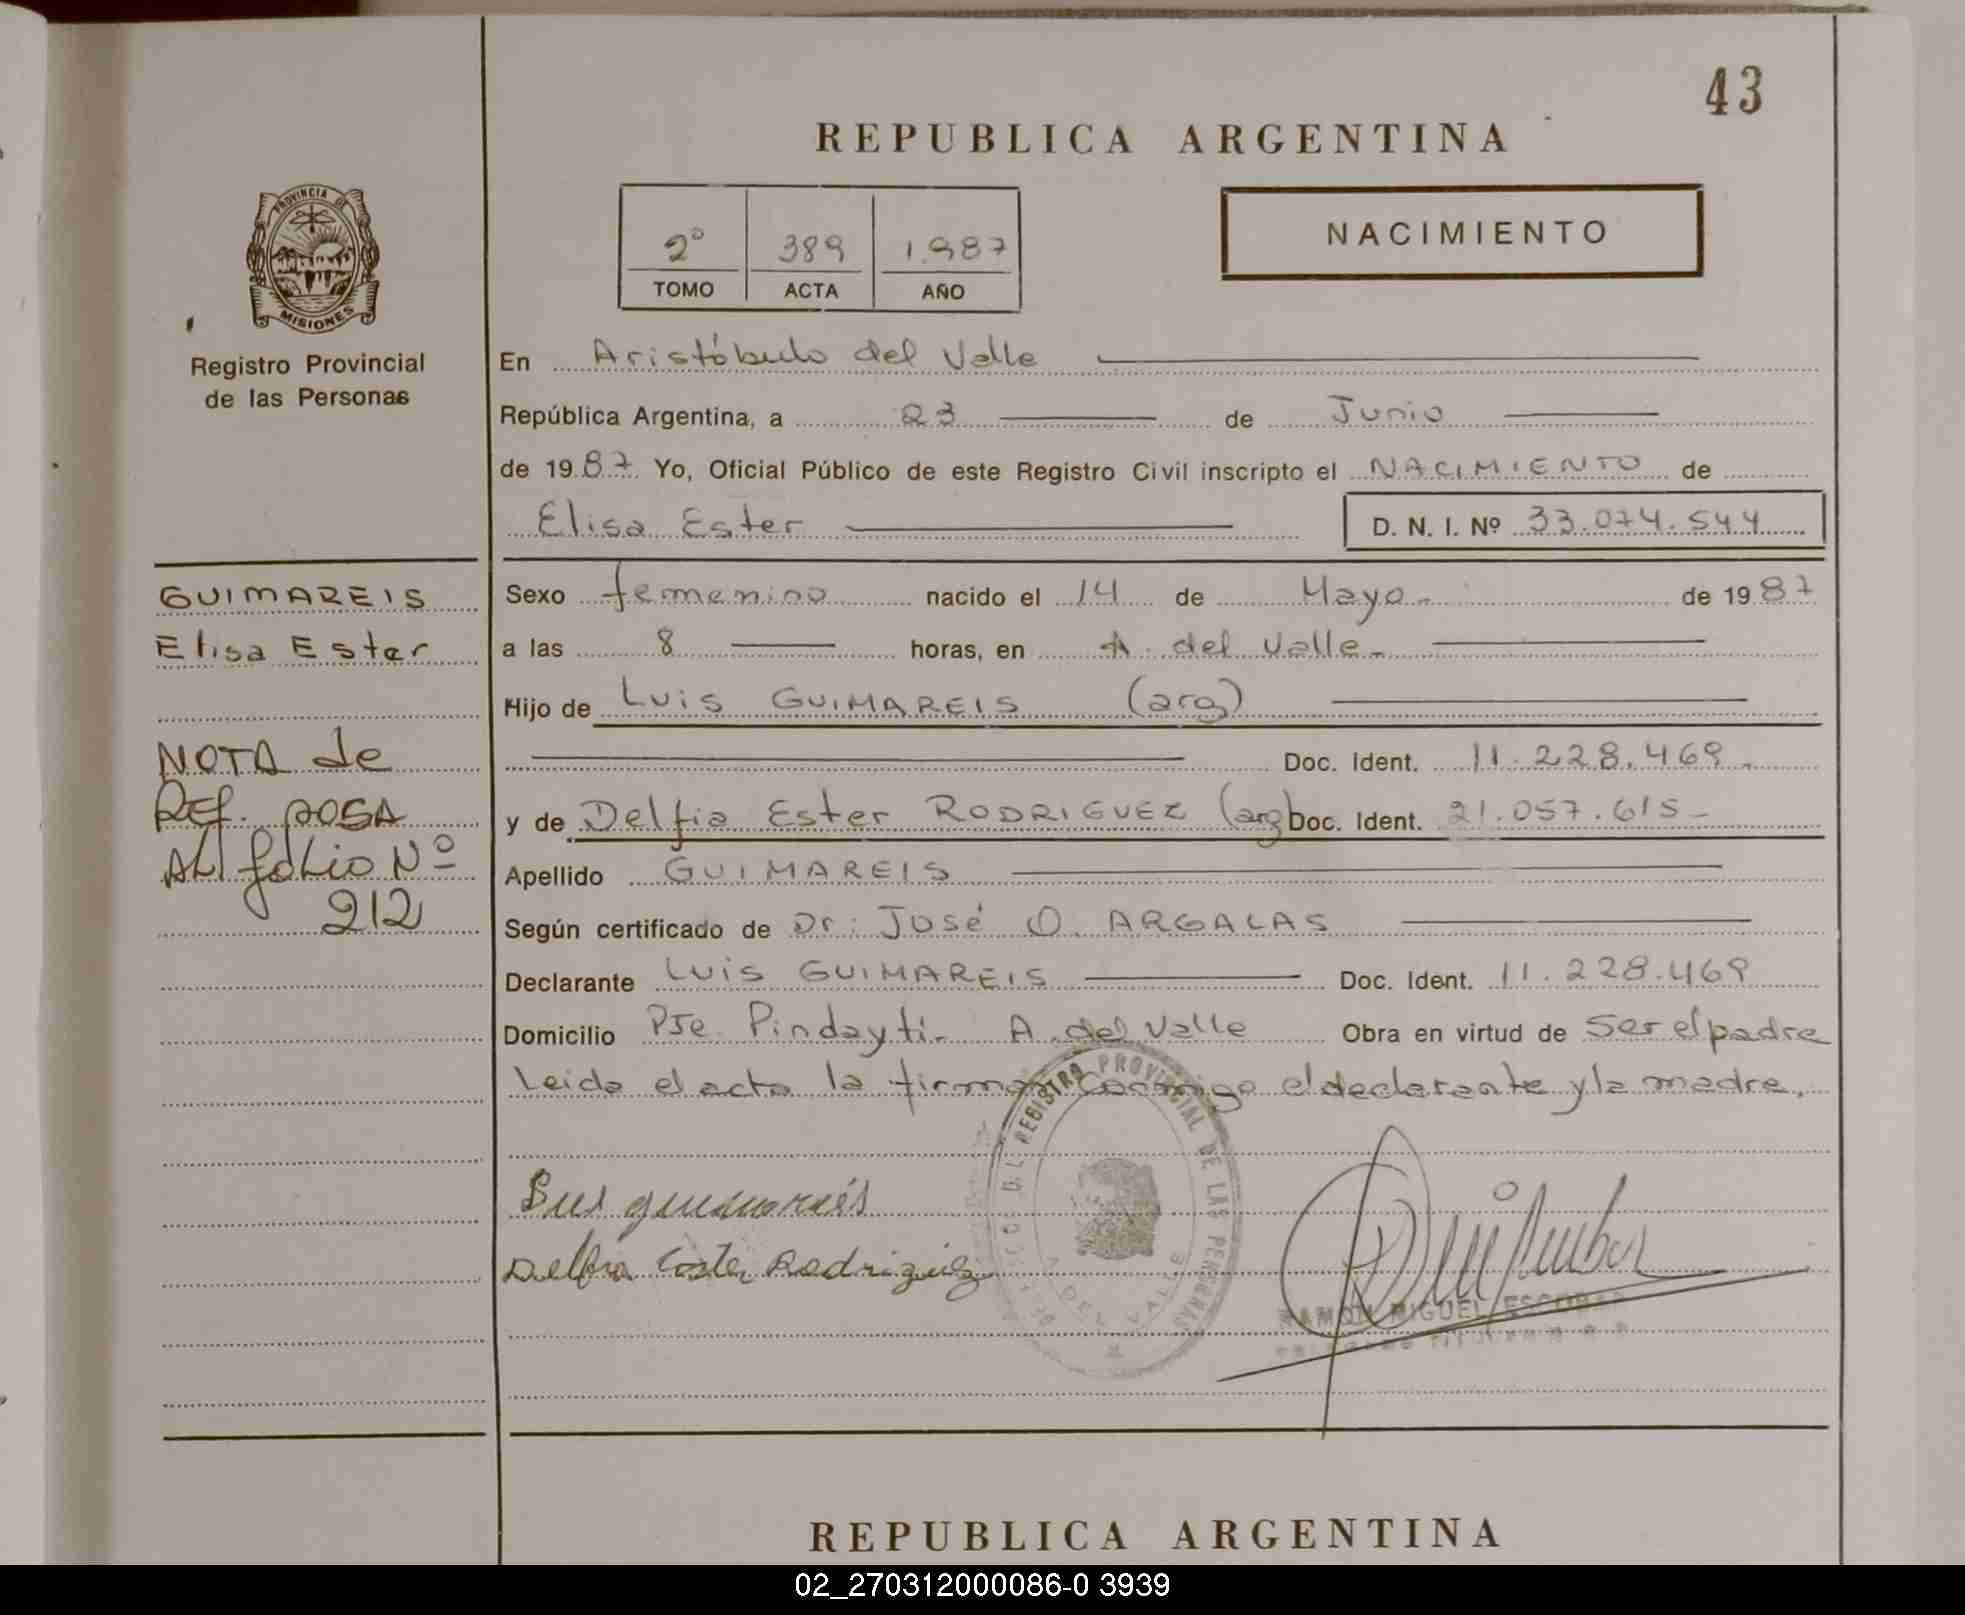 43
REPUBLICA ARGENTINA
2° 389 1.987
TOMO ACTA AÑO
NACIMIENTO
PROVINCIA DE
MISIONES
Registro Provincial
de las Personas
En Aristóbulo del Valle
República Argentina, a 23 de Junio
de 1987 Yo, Oficial Público de este Registro Civil inscripto el NACIMIENTO de
Elisa Ester D. N. I. Nº 33.074.544
GUIMAREIS
Elisa Ester
NOTA de
REF. POSA
AL folio Nº
212
Sexo femenino nacido el 14 de Mayo.- de 1987
a las 8 horas, en A. del Valle.-
Hijo de Luis GUIMAREIS (arg)
Doc. Ident. 11.228.469.
y de Delfia Ester RODRIGUEZ (arg) Doc. Ident. 21.057.615-
Apellido GUIMAREIS
Según certificado de Dr: José O. ARGALAS
Declarante Luis GUIMAREIS Doc. Ident. 11.228.469
Domicilio PJe. Pindayti- A. del Valle Obra en virtud de Ser el padre
Leida el acta la firman conmigo el declarante y la madre.
REGISTRO PROVINCIAL DE LAS PERSONAS
A. DEL VALLE
Luis guimareis
Delfia Ester Rodriguez
RAMON MIGUEL ESCOBAR
REPUBLICA ARGENTINA
02_270312000086-0 3939